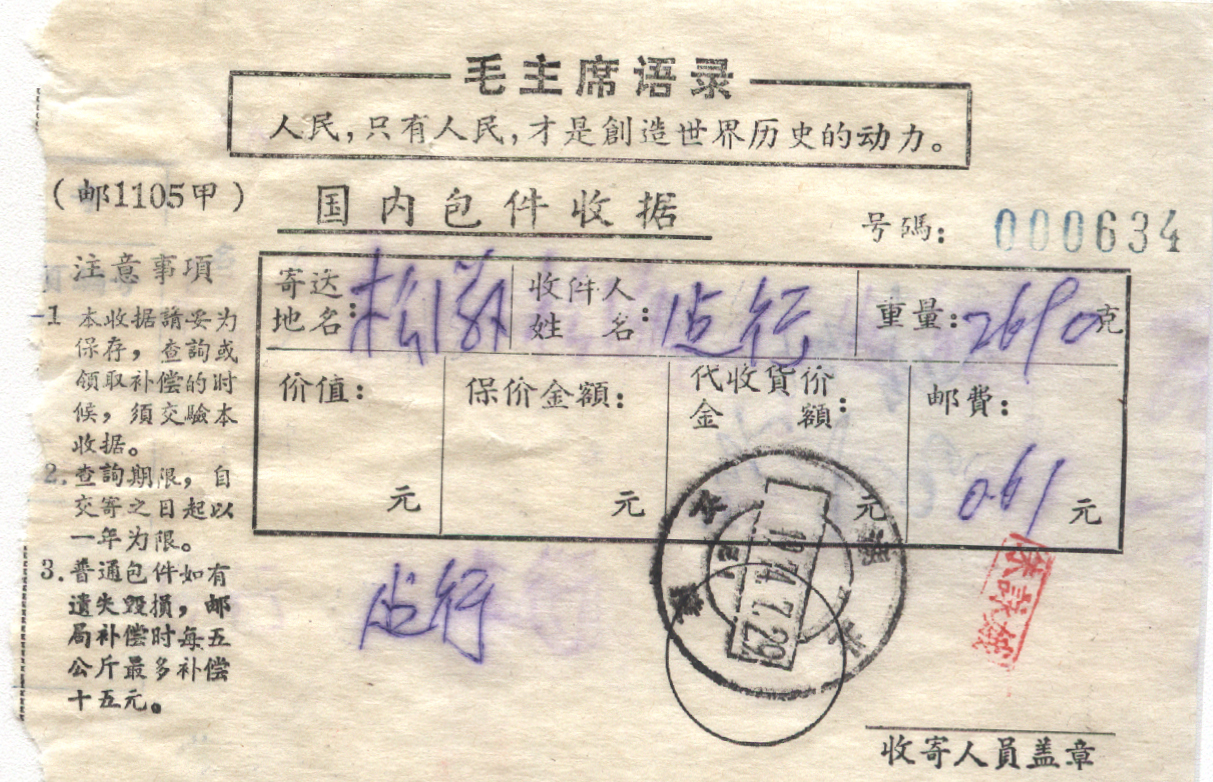 毛主席语录
人民,只有人民,才是創造世界历史的动力。
(邮1105甲)
国内包件收据
号碼:000634
注意事項
1 本收据請妥为
保存,查詢或
領取补偿的时
候,須交驗本
收据。
2.查詢期限,自
交寄之日起以
一年为限。
3.普通包件如有
遗失毁損,邮
局补偿时每五
公斤最多补偿
十五元。
寄达
地名:松
收件人
姓名:占行
重量:2690克
价值:
元
保价金額:
元
代收貨价
金額:
元
邮費:
0.61元
占行
1974.7.29
收寄人員盖章